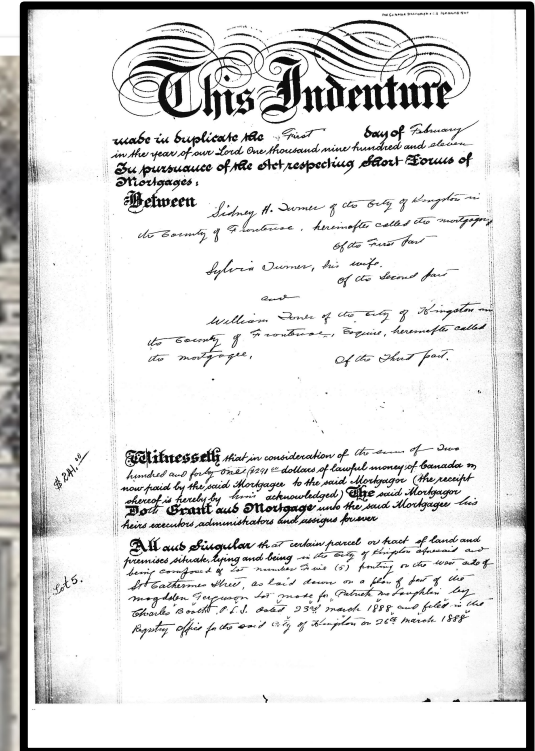 This Indenture
made in duplicate the First day of February
in the year of our Lord One thousand nine hundred and eleven
In pursuance of the Act respecting Short Forms of
Mortgages:
Between Sidney H. Turner of the City of Kingston in
the County of Frontenac, hereinafter called the mortgagor
Of the First Part
Sylvia Turner, his wife.
Of the Second part
and
William of the City of Kingston in
the County of Frontenac, Esquire, hereinafter called
the mortgagee,
Of the Third part.
$241.00
Witnesseth that in consideration of the sum of Two
hundred and forty one ($241.00 dollars of lawful money of Canada
now paid by the said Mortgagee to the said Mortgagor (the receipt
whereof is hereby by him acknowledged) The said Mortgagor
Doth Grant and Mortgage unto the said Mortgagee his
heirs executors, administrators and assigns forever
All and Singular that certain parcel or tract of land and
premises situate, lying and being in the City of Kingston aforesaid and
being composed of Lot number Five (5) fronting on the west side of
Lot 5.
St Catherines Street, as laid down on a plan of part of the
Magdalen Ferguson lot made for Patrick McLaughlin by
Charles P.L.S. dated 23rd March 1888 and filed in the
Registry Office for the said City of Kingston on 26th March 1888